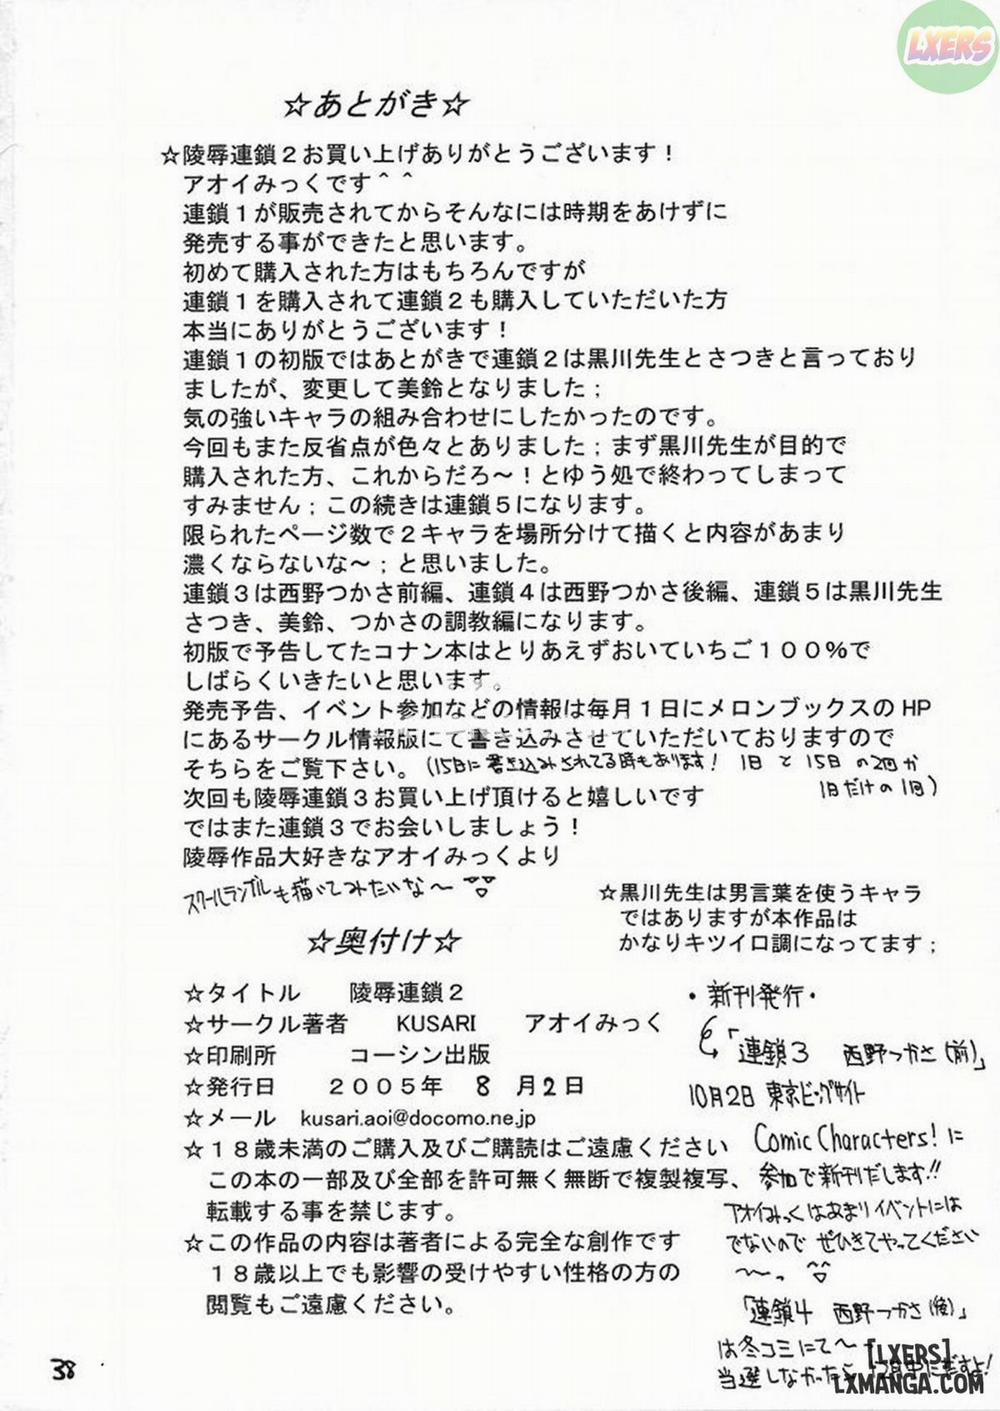 LXERS
☆あとがき☆
☆陵辱連鎖２お買い上げありがとうございます！
アオイみっくです＾＾
連鎖１が販売されてからそんなには時期をあけずに
発売する事ができたと思います。
初めて購入された方はもちろんですが
連鎖１を購入されて連鎖２も購入していただいた方
本当にありがとうございます！
連鎖１の初版ではあとがきで連鎖２は黒川先生とさつきと言っており
ましたが、変更して美鈴となりました；
気の強いキャラの組み合わせにしたかったのです。
今回もまた反省点が色々とありました；まず黒川先生が目的で
購入された方、これからだろ～！とゆう処で終わってしまって
すみません；この続きは連鎖５になります。
限られたページ数で２キャラを場所分けて描くと内容があまり
濃くならないな～；と思いました。
連鎖３は西野つかさ前編、連鎖４は西野つかさ後編、連鎖５は黒川先生
さつき、美鈴、つかさの調教編になります。
初版で予告してたコナン本はとりあえずおいていちご１００％で
しばらくいきたいと思います。
発売予告、イベント参加などの情報は毎月１日にメロンブックスのHP
にあるサークル情報版にて書き込みさせていただいておりますので
そちらをご覧下さい。(15日に書き込みされてる時もあります！ 1日と15日の2回か
1日だけの1回)
次回も陵辱連鎖３お買い上げ頂けると嬉しいです
ではまた連鎖３でお会いしましょう！
陵辱作品大好きなアオイみっくより
スクールランブルも描いてみたいな～
☆黒川先生は男言葉を使うキャラ
ではありますが本作品は
かなりキツイロ調になってます；
☆奥付け☆
☆タイトル 陵辱連鎖２
☆サークル著者 KUSARI アオイみっく
☆印刷所 コーシン出版
☆発行日 ２００５年 8 月2日
☆メール kusari.aoi@docomo.ne.jp
☆１８歳未満のご購入及びご購読はご遠慮ください
この本の一部及び全部を許可無く無断で複製複写、
転載する事を禁じます。
☆この作品の内容は著者による完全な創作です
１８歳以上でも影響の受けやすい性格の方の
閲覧もご遠慮ください。
・新刊発行・
「連鎖3 西野つかさ(前)」
10月2日 東京ビッグサイト
Comic Characters!に
参加で新刊だします!!
アオイみっくはあまりイベントには
でないので ぜひきてやってください
～っ
「連鎖4 西野つかさ(後)」
は冬コミにて～
当選しなかったら
38
[LXERS]
LXMANGA.COM